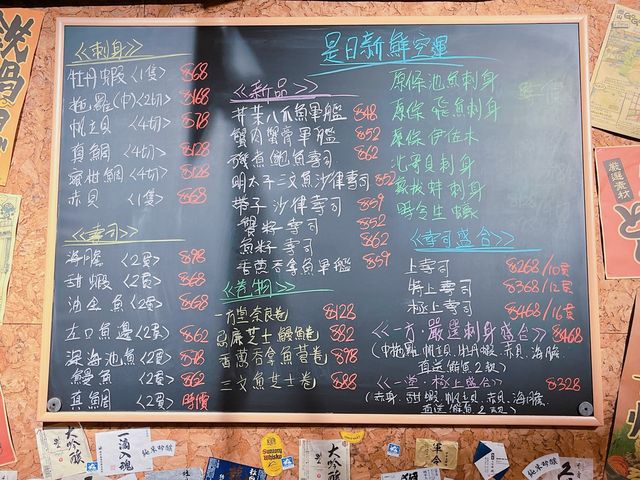 是日新鮮空運
<<刺身>>
牡丹蝦 <1隻> $68
拖羅(中)<2切> $168
帆立貝 <4切> $78
真鯛 <4切> $128
蜜柑鯛 <4切> $128
赤貝 <1隻> $68
<<壽司>>
海膽 <2貫> $98
甜蝦 <2貫> $68
油金魚 <2貫> $68
左口魚邊 <2貫> $62
深海池魚 <2貫> $58
鰻魚 <2貫> $62
真鯛 <2貫> 時價
<<新品>>
芥菜八爪魚軍艦 $48
蟹肉蟹膏軍艦 $52
磯煮鮑魚壽司 $62
明太子三文魚沙律壽司 $52
帶子沙律壽司 $59
蟹籽壽司 $52
魚籽壽司 $62
香蔥吞拿魚軍艦 $59
<<卷物>>
一方堂奈良卷 $128
芝士鰻魚卷 $82
香蔥吞拿魚蓉卷 $78
三文魚芝士卷 $88
原條池魚刺身
原條飛魚刺身
原條伊佐木
北寄貝刺身
象拔蚌刺身
野生生蠔
<<壽司盛合>>
上壽司 $268/10貫
特上壽司 $368/12貫
極上壽司 $468/16貫
<<一方·嚴選刺身盛合>> $468
(中拖羅.帆立貝.牡丹蝦.赤貝.海膽.
直送鮮魚2款)
<<一堂·極上盛合>> $328
(赤身.甜蝦.帆立貝.赤貝.海膽.
直送鮮魚2款)
嚴選素材
大吟醸
一滴入魂
純米吟醸
Suntory
Whisky
大吟醸
純米吟醸